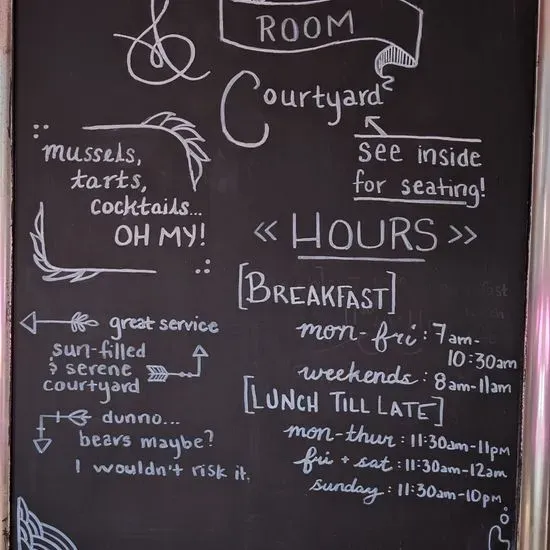 &
ROOM
Courtyard
See inside
for seating!
mussels,
tarts,
cocktails...
OH MY!
<< HOURS >>
[BREAKFAST]
mon-fri: 7am-
10:30am
weekends: 8am-11am
[LUNCH TILL LATE]
mon-thur: 11:30am-11pm
fri + sat: 11:30am-12am
sunday: 11:30am-10pm
great service
sun-filled
& serene
courtyard
dunno...
bears maybe?
I wouldn't risk it.